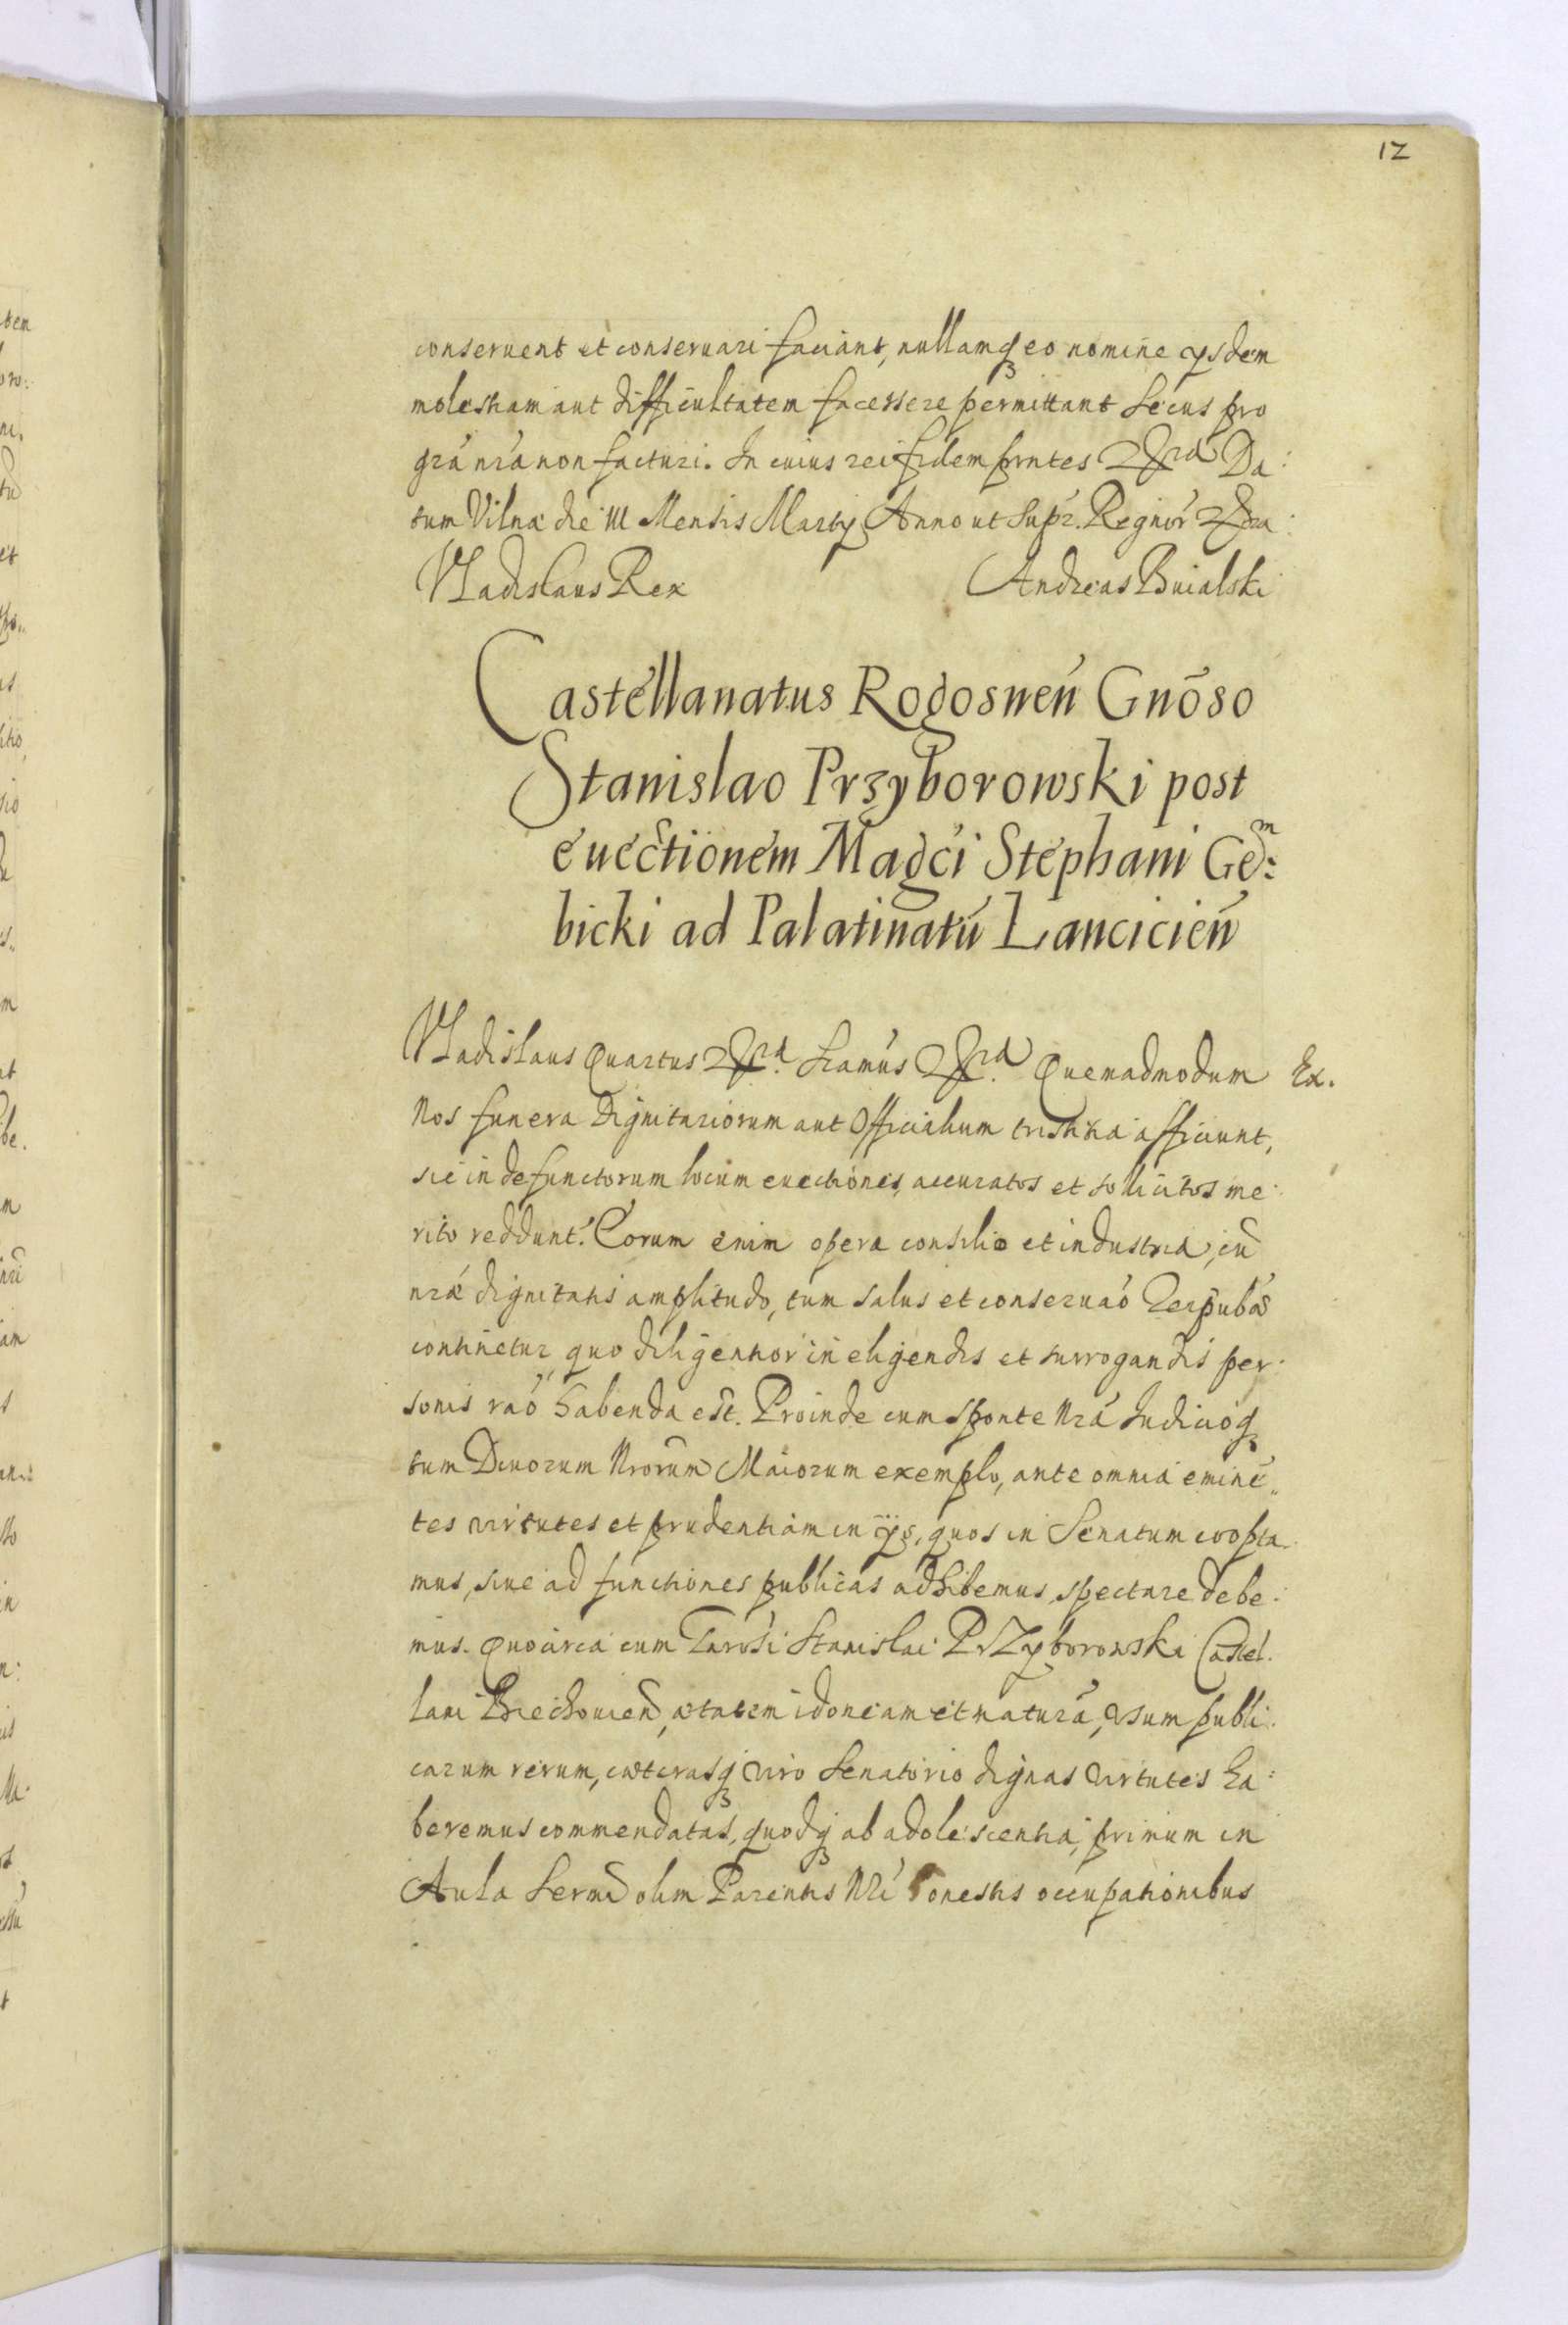 12
conseruent et conseruari faciant, nullamq; eo nomine ysdem
molestiam aut difficultatem facessere permittant Secus pro
grã nrã non facturi. In cuius rei fidem prntes Da:
tum Vilnæ die III Mensis Martij Anno ut Supr. Regnor̃
Vladislaus Rex Andreas Buialski
Castellanatus Rogosneñ Gnoso
Stanislao Przyborowski post
euectionem Magci Stephani Gem̃:
bicki ad Palatinatũ Lancicień
Vladislaus Quartus Sramus Quemadmodum Ex.
Nos funera Dignitariorum aut Officialium tristitia afficiunt,
sic in defunctorum locum euectiones, accuratos et sollicitos me:
rito reddunt. Eorum enim opera consilio et industria, cũ
nræ dignitatis amplitudo, tum salus et conseruaõ Reipubæ
continetur, quo diligentior in eligendis et surrogandis per:
sonis raõ habenda est. Proinde cum sponte Nrã Iudicioq;
tum Diuorum Nrorum Maiorum exemplo, ante omnia eminẽ„
tes virtutes et prudentiam in ijs, quos in Senatum coopta.
mus, siue ad functiones publicas adhibemus, spectare debe:
mus. Quocirca cum Stanislai Przyborowski Castel:
lani aetatem idoneam et maturã, vsum publi:
carum rerum, cæterasq; viro Senatorio dignas virtutes ha:
beremus commendatas, quodq; ab adolescentia, primum in
Aula Sermi olim Parentis Nri honestis occupationibus